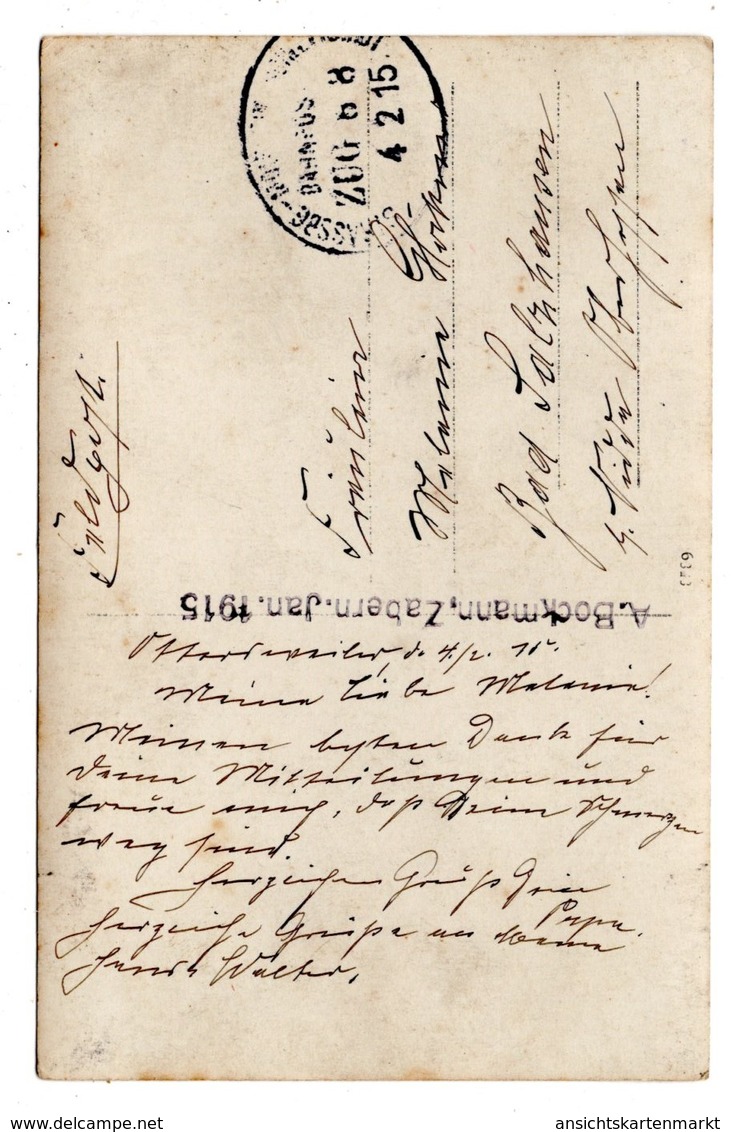 BAHNPOST
ZUG 6 8
4 2 15
Feldpost.
Fräulein
Melanie
Bad Salzhausen
b. Nidda Oberhessen
6343
A. Bockmann, Zabern. Jan. 1915
Ottersweiler, d. 4./2. 15.
Meine liebe Melanie!
Meinen besten Dank für
Deine Mitteilungen und
freue mich, daß Deine Schmerzen
weg sind.
Herzlichen Gruß Dein
Papa.
Herzliche Grüße an Mama
Walter.
ansichtskartenmarkt